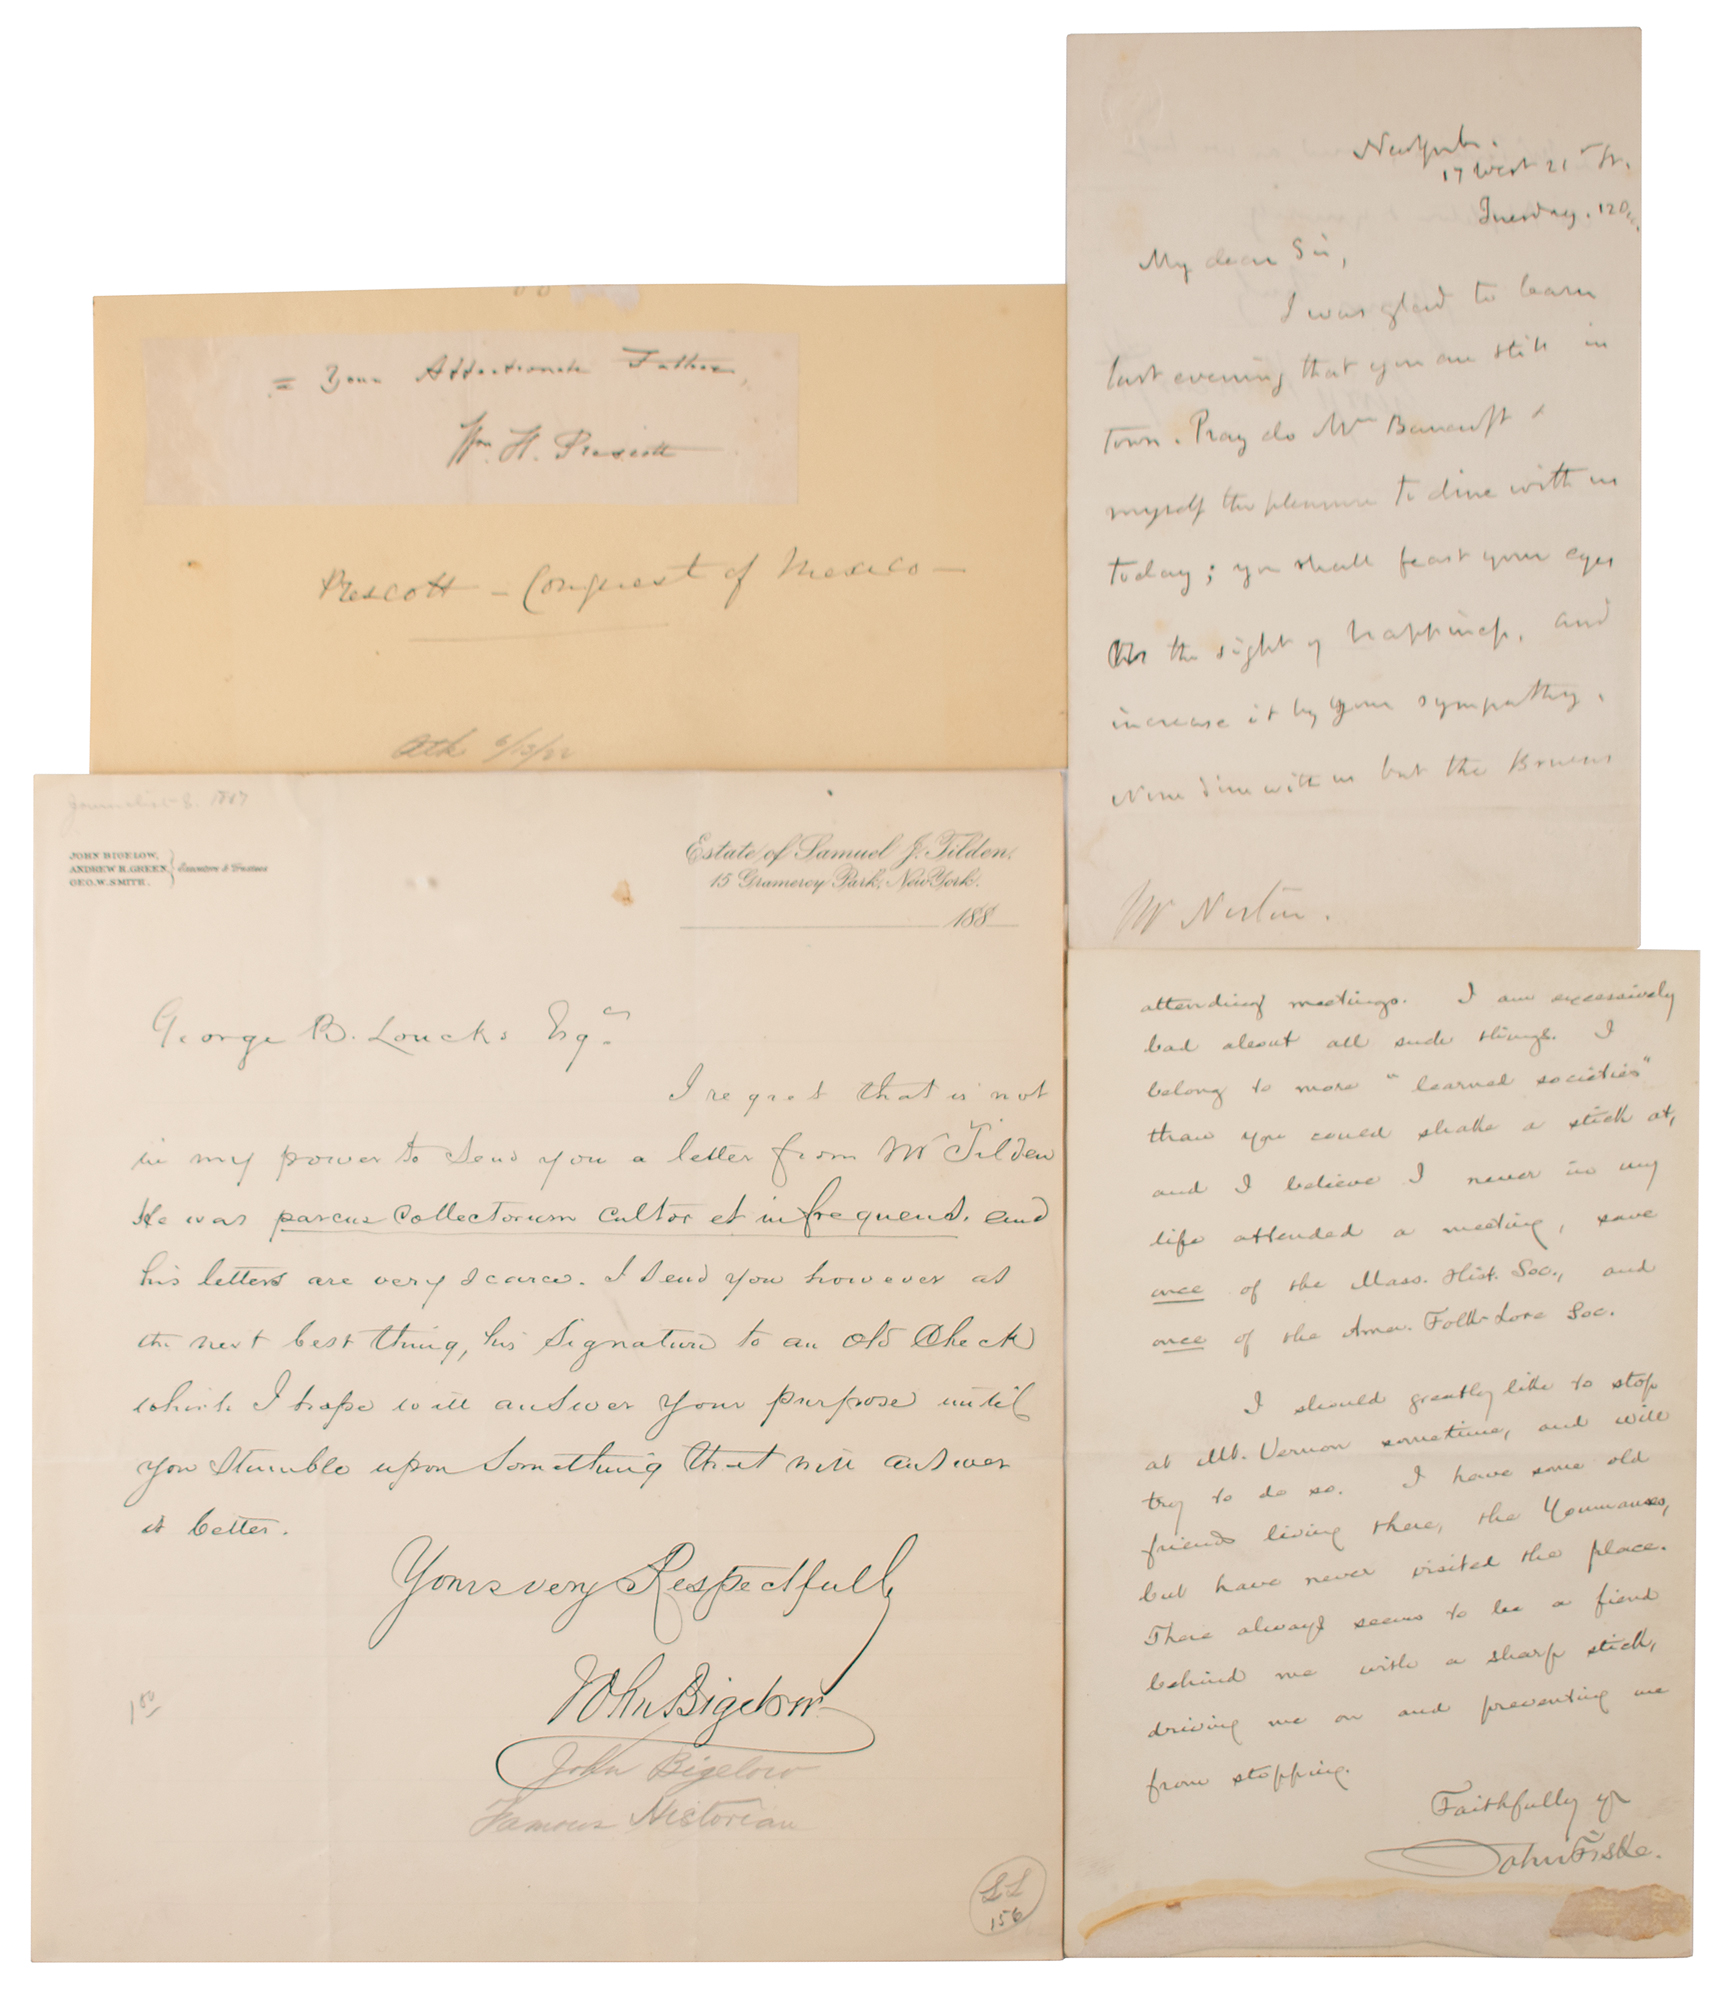 = Your Affectionate Father,
Wm. H. Prescott
Prescott - Conquest of Mexico -
6/13/22
New York.
17 West 21st St.
Tuesday. 12 Dec.
My dear Sir,
I was glad to learn
last evening that you are still in
town. Pray do Mrs Bancroft &
myself the pleasure to dine with us
today; you shall feast your eyes
the sight of happiness, and
increase it by your sympathy.
None dine with us but the Bruens
Mr Norton.
Journalist 8. 1887
JOHN BIGELOW,
ANDREW H. GREEN, Executors & Trustees
GEO. W. SMITH.
Estate of Samuel J. Tilden.
15 Gramercy Park, New York.
188
George B. Loucks Esqr
I regret that is not
in my power to send you a letter from Mr Tilden
He was parcus collectorum cultor et infrequens. and
his letters are very scarce. I send you however as
the next best thing, his signature to an old check
which I hope will answer your purpose until
you stumble upon something that will answer
it better.
Yours very Respectfully
John Bigelow
John Bigelow
Famous Historian
1.00
LS
156
attending meetings. I am excessively
bad about all such things. I
belong to more "learned societies"
than you could shake a stick at,
and I believe I never in my
life attended a meeting, save
once of the Mass. Hist. Soc., and
once of the Amer. Folk-Lore Soc.
I should greatly like to stop
at Mt. Vernon sometime, and will
try to do so. I have some old
friends living there, the Youmanses,
but have never visited the place.
There always seems to be a fiend
behind me with a sharp stick,
driving me on and preventing me
from stopping.
Faithfully yr
John Fiske.